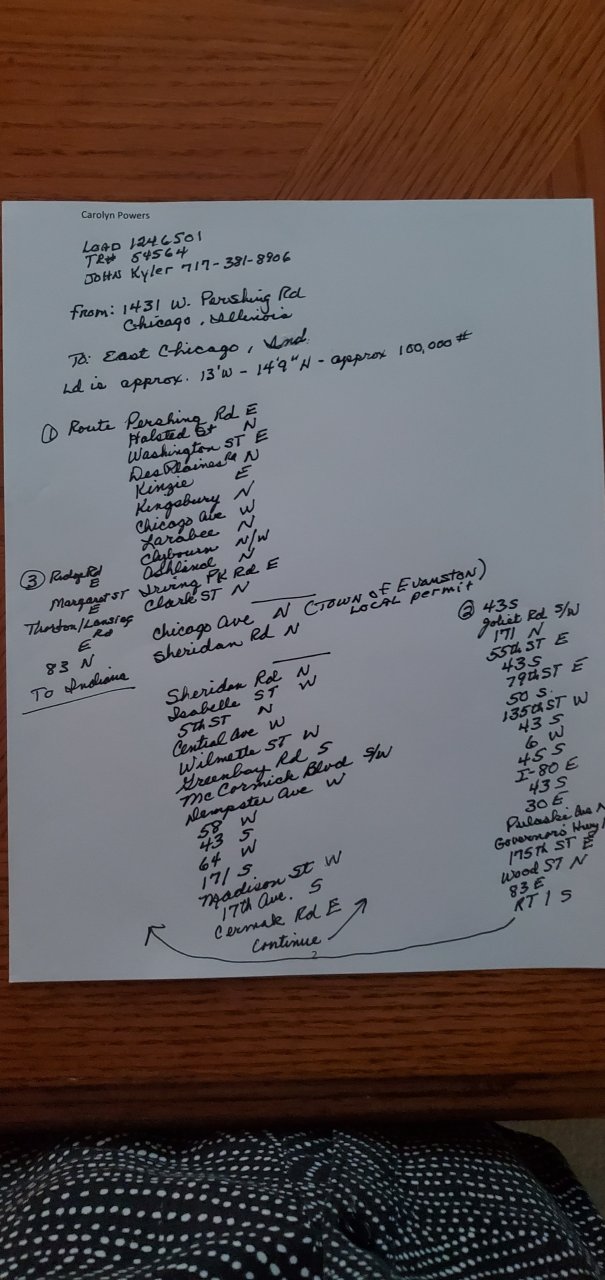 Carolyn Powers
LOAD 1246501
TR# 54564
JOHN Kyler 717-381-8906
From: 1431 W. Pershing Rd
Chicago, Illinois
To: East Chicago, Ind.
Ld is approx. 13'W - 14'9" H - approx 100,000 #
① Route Pershing Rd E
Halsted St N
Washington ST E
DesPlaines N
Kinzie E
Kingsbury N
Chicago Ave W
Larabee N
Clybourn N/W
Ashland N
Irving PK Rd E
Clark ST N
Chicago Ave N (TOWN OF EVANSTON)
LOCAL permit
Sheridan Rd N
Sheridan Rd N
Isabelle ST W
5th ST N
Central Ave W
Wilmette ST W
Greenbay Rd S
McCormick Blvd S/W
Dempster Ave W
58 W
43 S
64 W
171 S
Madison St W
17th Ave. S
Cermak Rd E
Continue
② 43S
Joliet Rd S/W
171 N
55th ST E
43S
79th ST E
50 S.
135th ST W
43 S
6 W
45 S
I-80 E
43 S
30 E
Pulaski Ave N
Governors Hwy
175th ST E
Wood ST N
83 E
RT 1 S
③ Ridge Rd
E
Margaret ST
E
Thorton/Lansing
Rd
E
83 N
To Indiana